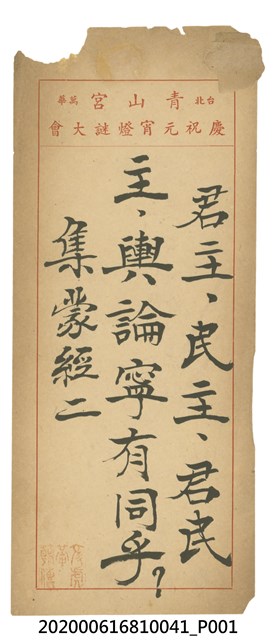 台北 青山宮 萬華
慶祝元宵燈謎大會
君主、民主、君民
主、輿論寧有同乎？
集蒙經二
202000616810041_P001